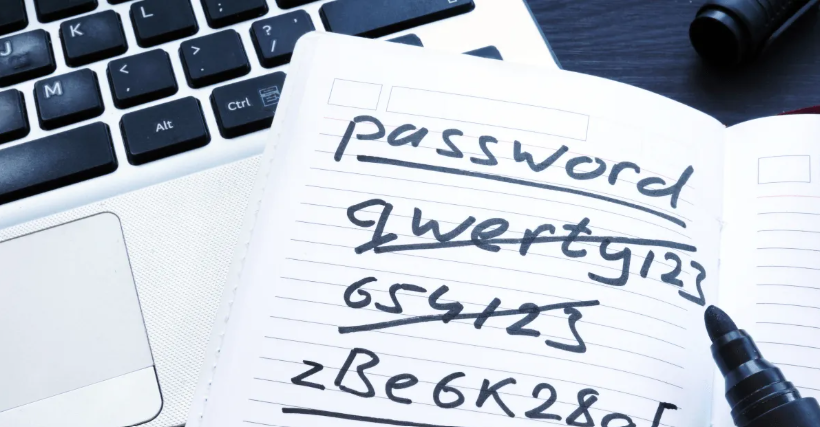 L :
K
J
? /
> .
< ,
M
Ctrl
Alt
password
qwerty123
654123
zBe6K28